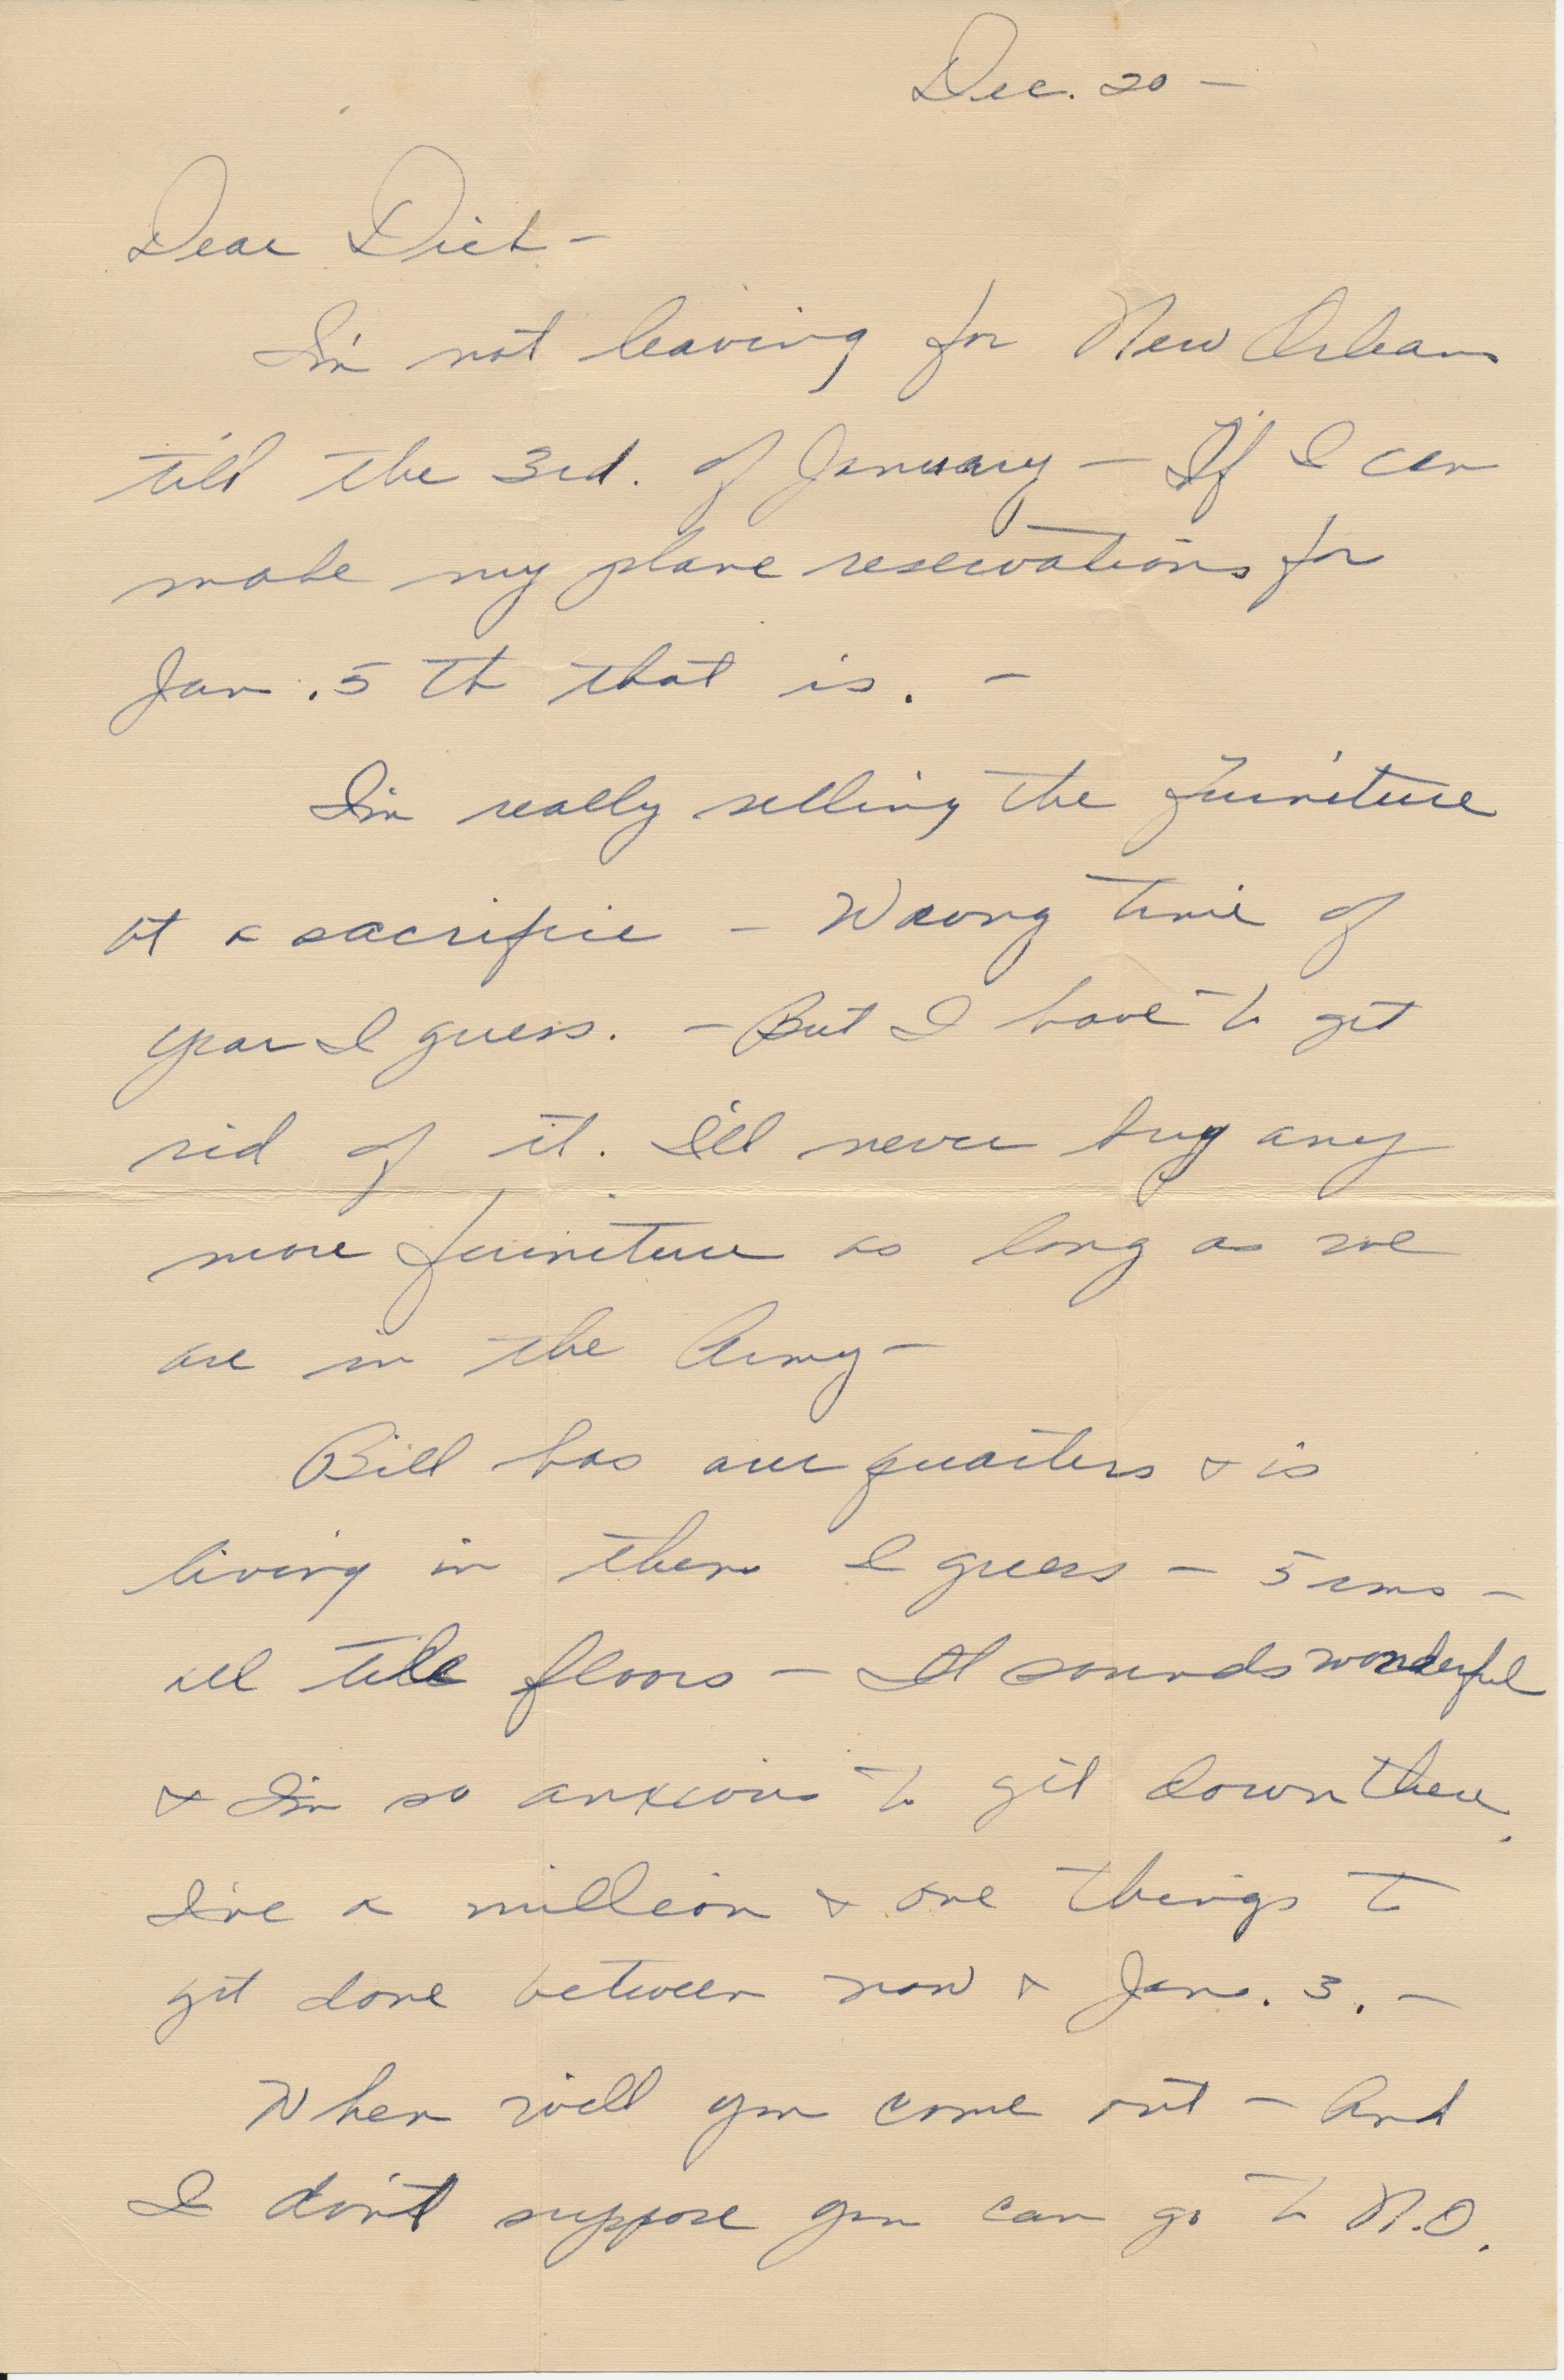 Dec. 20 —
Dear Dick —
I'm not leaving for New Orleans
till the 3rd. of January — If I can
make my plane reservations for
Jan. 5 th that is. —
I'm really selling the furniture
at a sacrifice — Wrong time of
year I guess. — But I have to get
rid of it. I'll never buy any
more furniture as long as we
are in the Army —
Bill has our quarters & is
living in them I guess — 5 rms —
all tile floors — It sounds wonderful
& I'm so anxious to get down there.
I've a million & one things to
get done between now & Jan. 3. —
When will you come out — And
I don't suppose you can go to N.O.